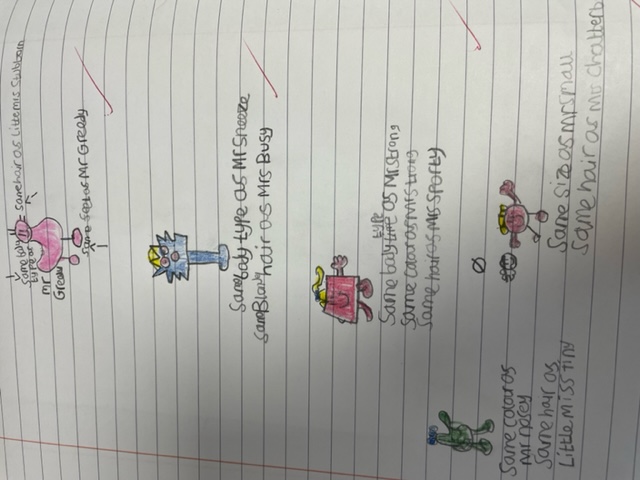 same hair as Little mis Stubborn
same body type as
mr Greedy
same feet as Mr Gready
Same baby type as Mr Sneeze
hair as Mrs Busy
Same baby type as Mr Strong
Same color as mr strong
Same hair as Mrs Sporty
Same size as mr small
Same hair as Mr Chatterb
Same color as
Mr
Same hair as
Little Miss Tiny